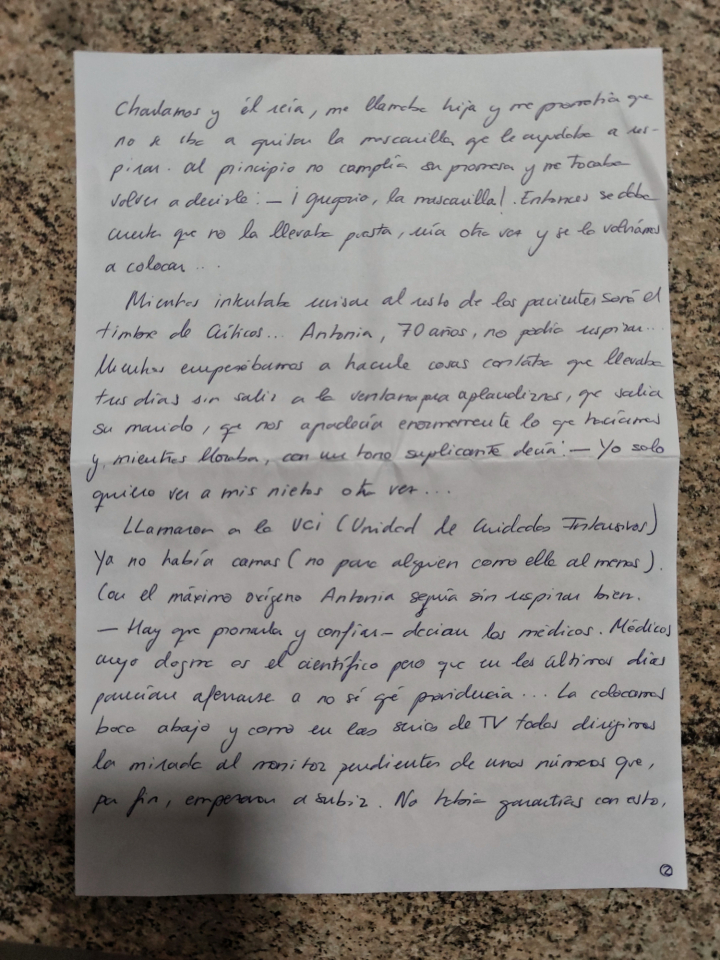 Charlamos y él reía, me llamaba hija y me prometía que
no se iba a quitar la mascarilla que le ayudaba a res-
pirar. Al principio no cumplía su promesa y me tocaba
volver a decirle: - ¡Gregorio, la mascarilla!. Entonces se daba
cuenta que no la llevaba puesta, reía otra vez y se la volvíamos
a colocar...
Mientras intentaba revisar al resto de los pacientes sonó el
timbre de Críticos... Antonia, 70 años, no podía respirar...
Mientras empezábamos a hacerle cosas contaba que llevaba
tres días sin salir a la ventana para aplaudirnos, que salía
su marido, que nos agradecía enormemente lo que hacíamos
y, mientras lloraba, con un tono suplicante decía: - Yo solo
quiero ver a mis nietos otra vez...
Llamaron a la UCI (Unidad de Cuidados Intensivos)
Ya no había camas (no para alguien como ella al menos).
Con el máximo oxígeno Antonia seguía sin respirar bien.
- Hay que pronarla y confiar - decían los médicos. Médicos
cuyo dogma es el científico pero que en los últimos días
parecían aferrarse a no sé qé providencia... La colocamos
boca abajo y como en las series de TV todos dirigimos
la mirada al monitor pendientes de unos números que,
por fin, empezaron a subir. No había garantías con esto,
2